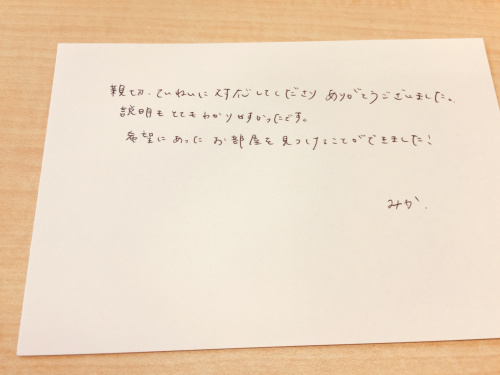 親切、ていねいに対応してくださり ありがとうございました。
説明も とてもわかりやすかったです。
希望にあった お部屋を見つけることができました!
みか.